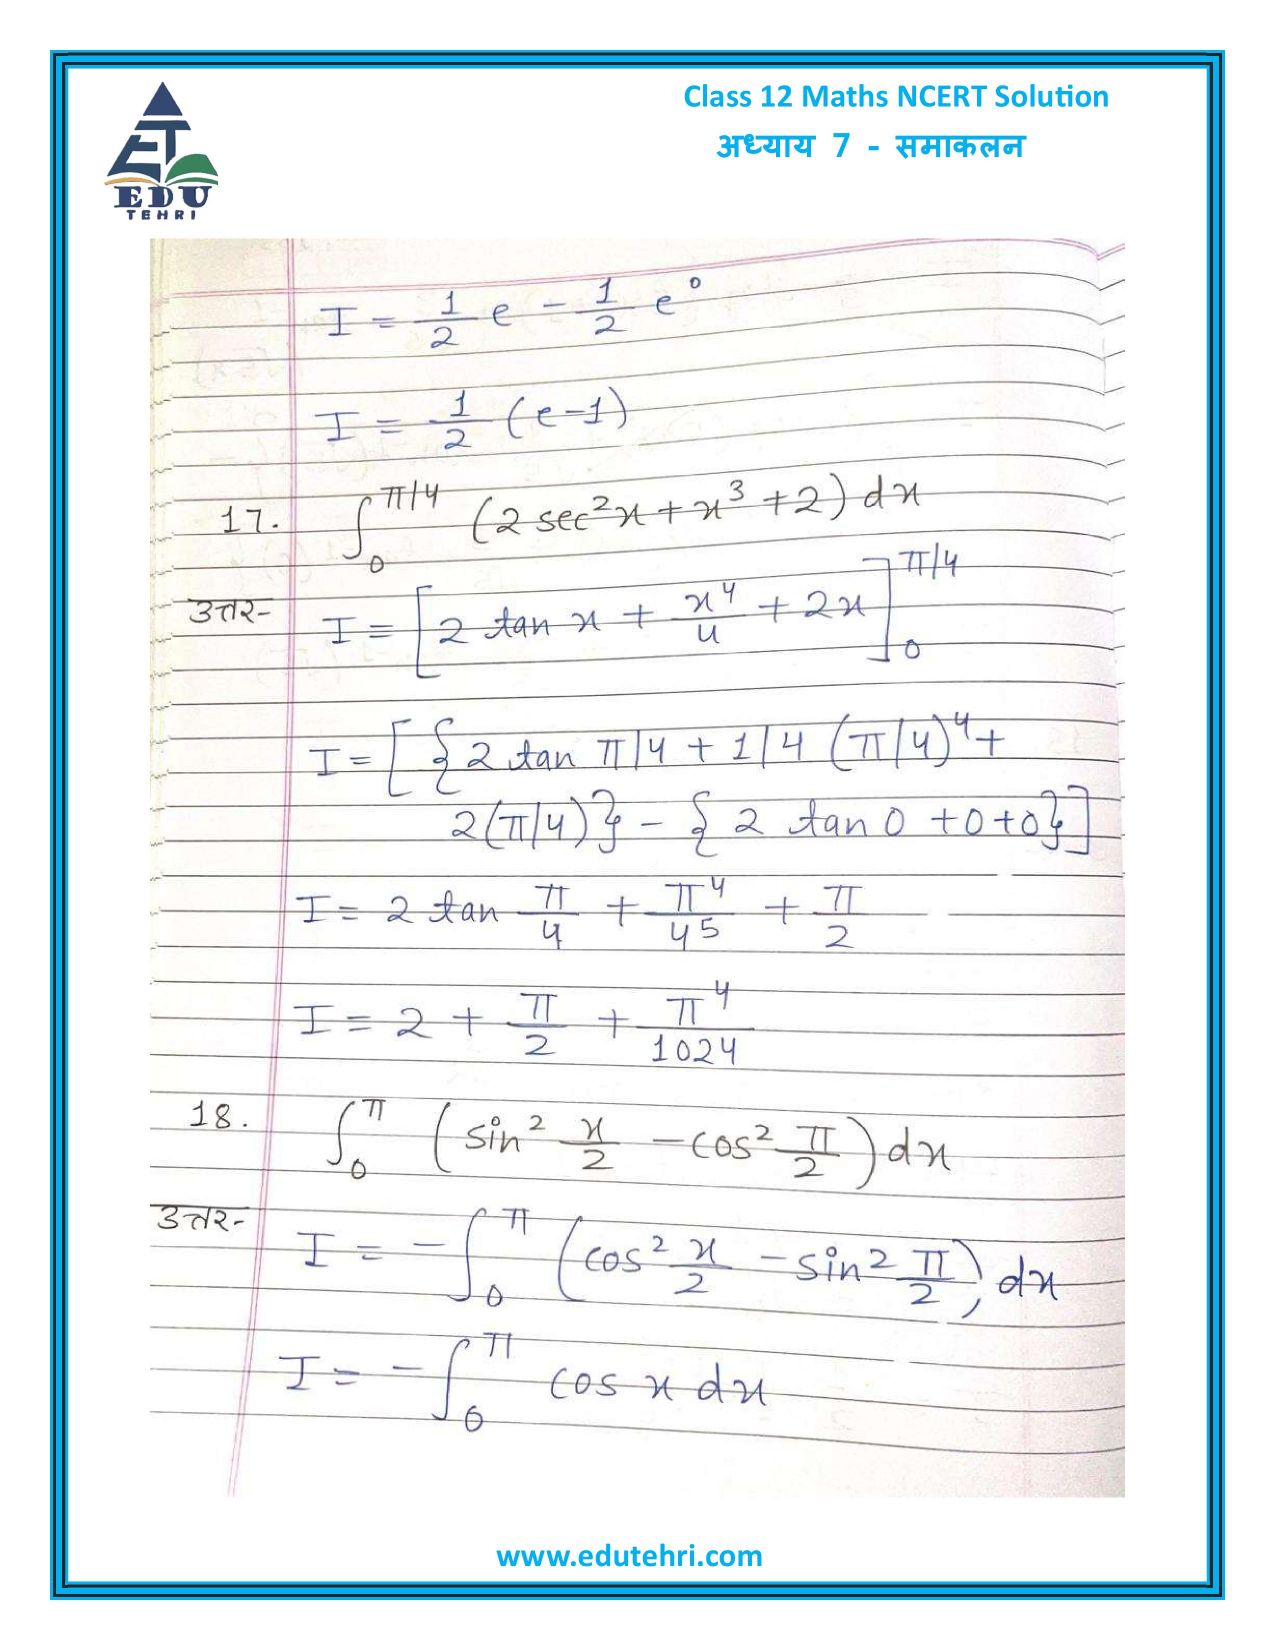 Class 12 Maths NCERT Solution
अध्याय 7 - समाकलन
EDU
TEHRI
I = 1/2 e - 1/2 e⁰
I = 1/2 (e-1)
17. ∫₀^π/4 (2 sec²x + x³ + 2) dx
उत्तर- I = [2 tan x + x⁴/4 + 2x]₀^π/4
I = [{2 tan π/4 + 1/4 (π/4)⁴ +
2(π/4)} - {2 tan 0 + 0 + 0}]
I = 2 tan π/4 + π⁴/4⁵ + π/2
I = 2 + π/2 + π⁴/1024
18. ∫₀^π (sin² x/2 - cos² π/2) dx
उत्तर- I = - ∫₀^π (cos² x/2 - sin² π/2) dx
I = - ∫₀^π cos x dx
www.edutehri.com